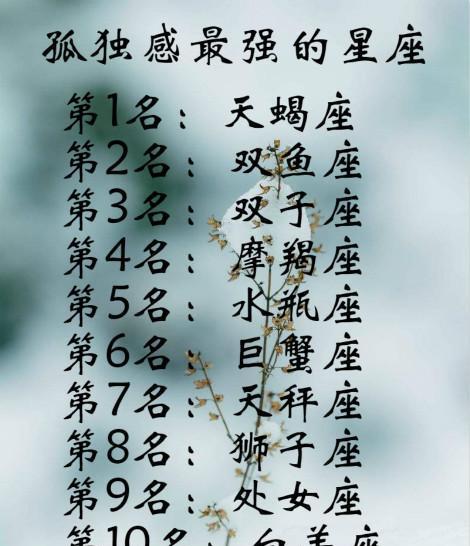 孤独感最强的星座
第1名：天蝎座
第2名：双鱼座
第3名：双子座
第4名：摩羯座
第5名：水瓶座
第6名：巨蟹座
第7名：天秤座
第8名：狮子座
第9名：处女座
第10名：白羊座